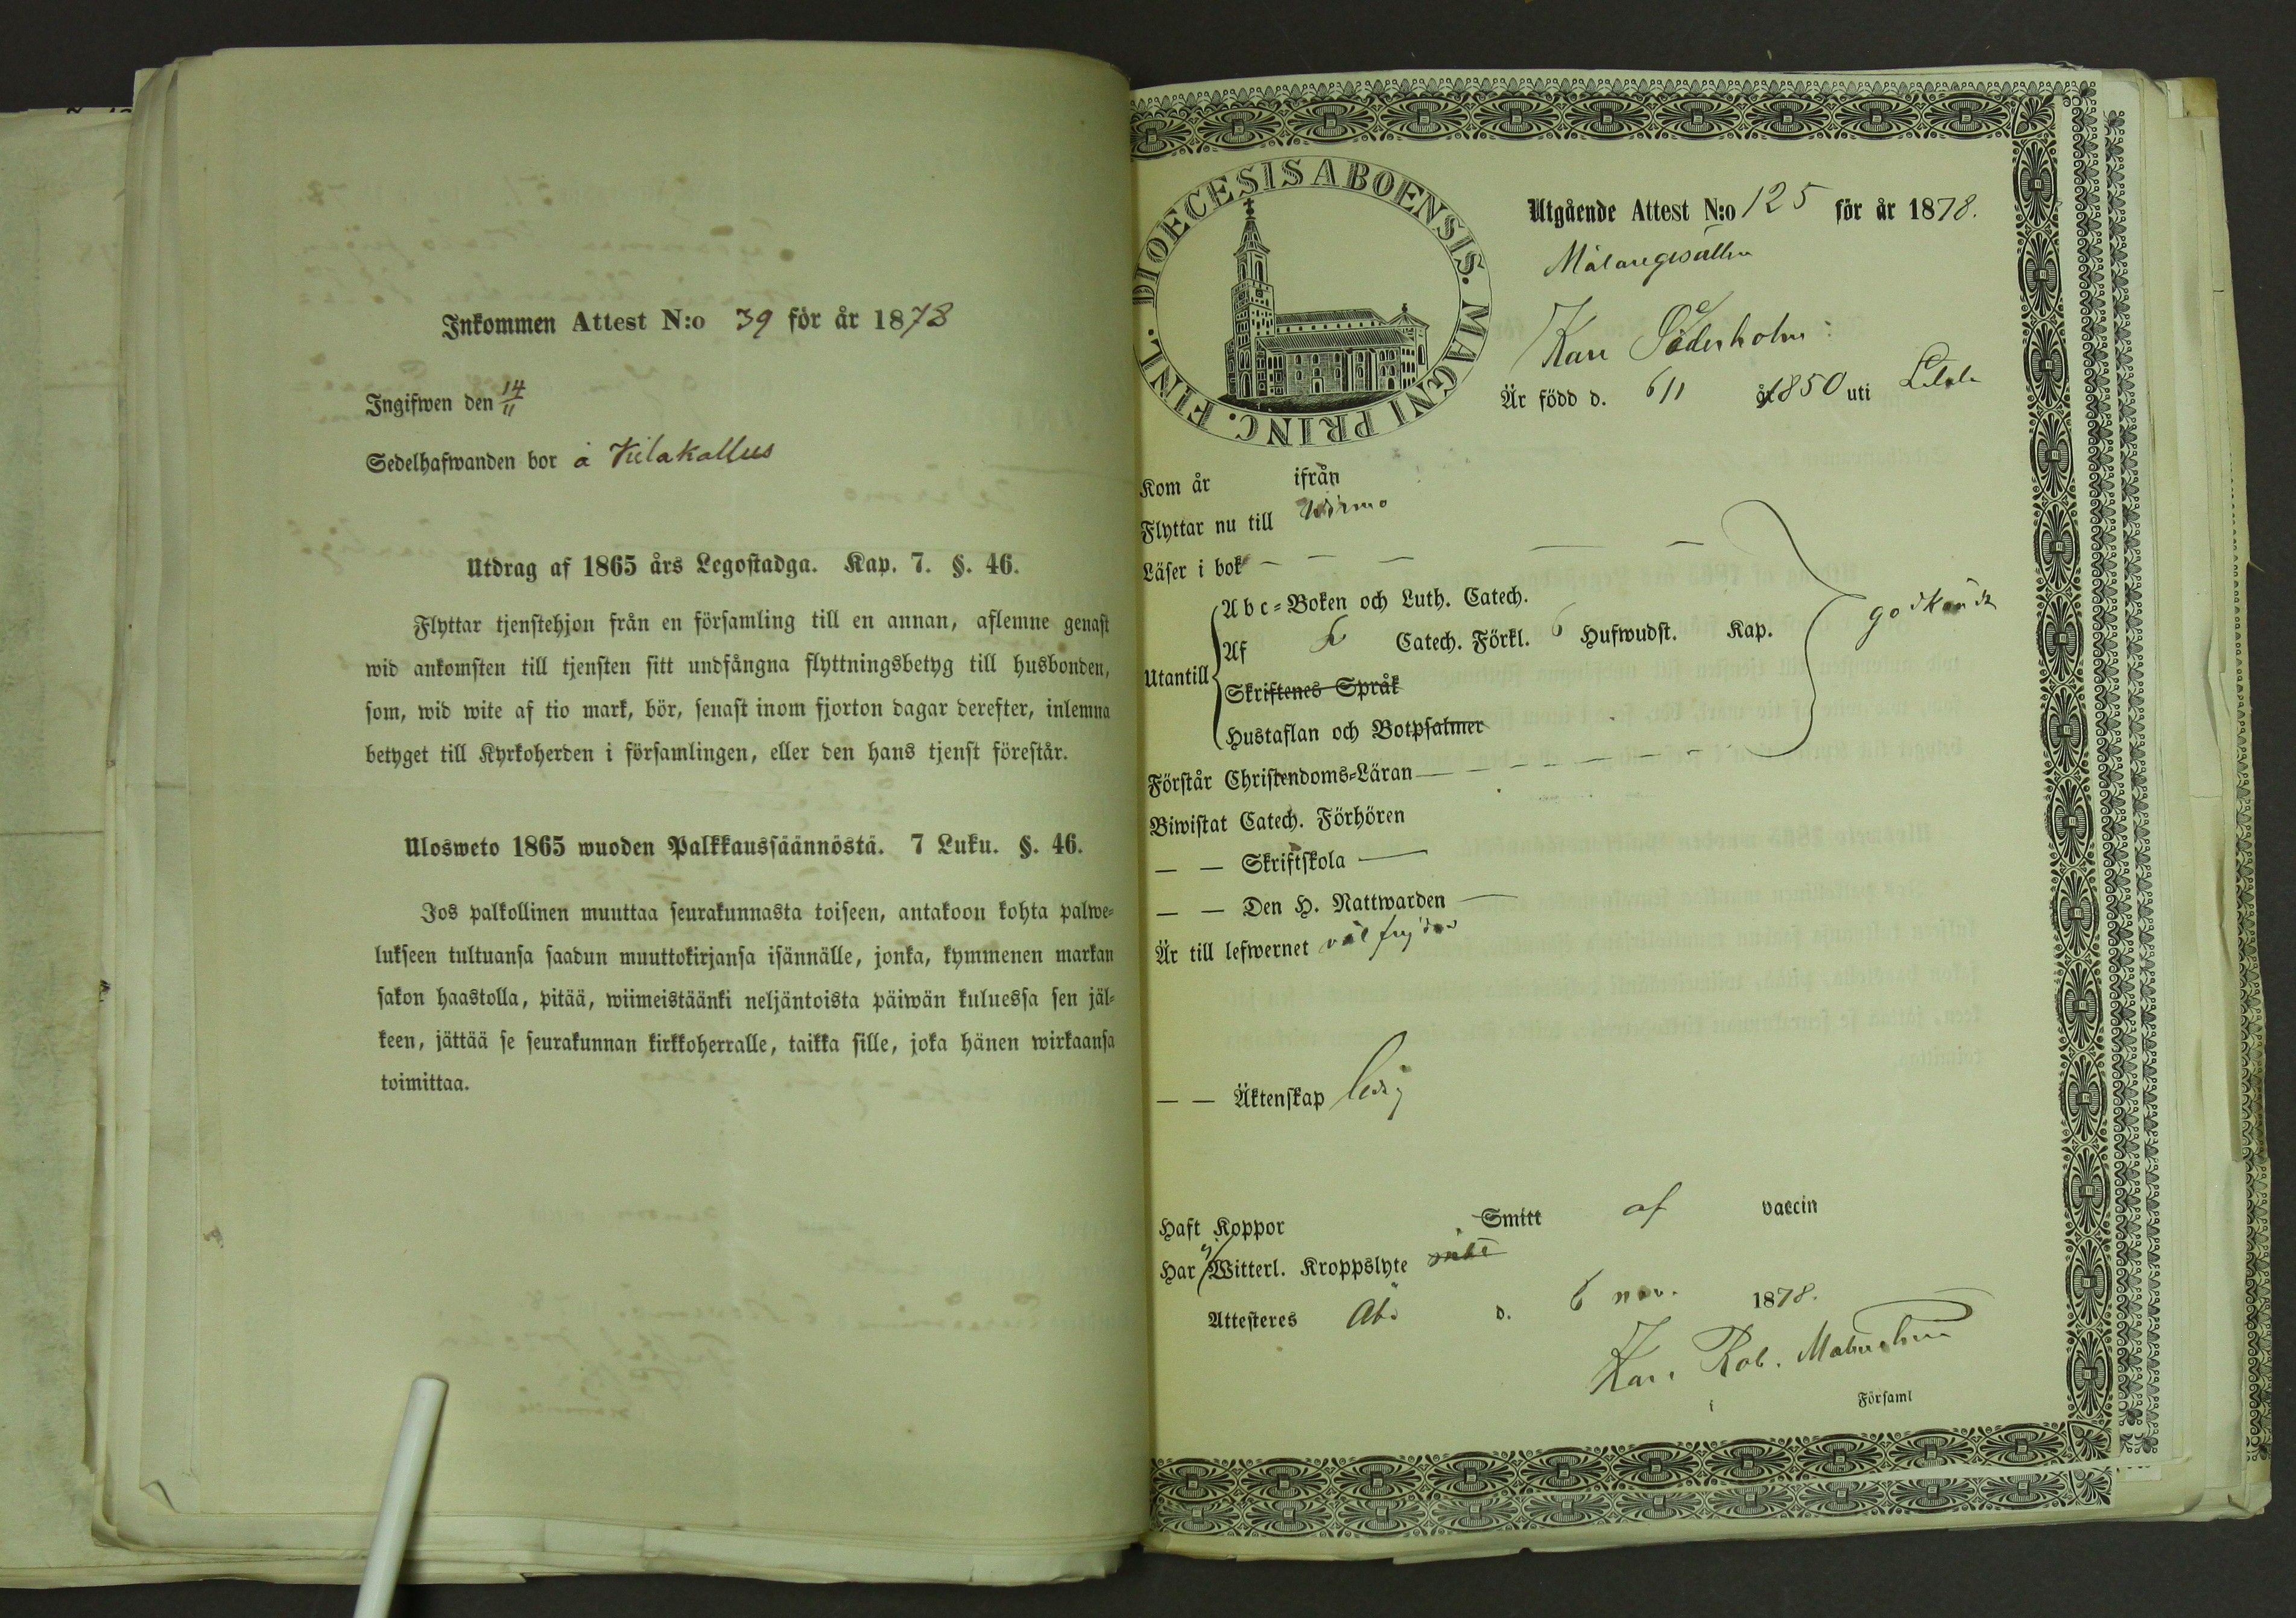 Inkommen Attest N:o 39 för år 1878
Ingifwen den 14/11
Sedelhafwanden bor å Viilakallus
Utdrag af 1865 års Legostadga. Kap. 7. §. 46.
Flyttar tjenstehjon från en församling till en annan, aflemne genast
wid ankomsten till tjensten sitt undfångna flyttningsbetyg till husbonden,
som, wid wite af tio mark, bör, senast inom fjorton dagar derefter, inlemna
betyget till Kyrkoherden i församlingen, eller den hans tjenst förestår.
Ulosweto 1865 wuoden Palkkaussäännöstä. 7 Luku. §. 46.
Jos palkollinen muuttaa seurakunnasta toiseen, antakoon kohta palwe-
lukseen tultuansa saadun muuttokirjansa isännälle, jonka, kymmenen markan
sakon haastolla, pitää, wiimeistäänki neljäntoista päiwän kuluessa sen jäl-
keen, jättää se seurakunnan kirkkoherralle, taikka sille, joka hänen wirkaansa
toimittaa.
DIOECESIS ABOENSIS. MAGNI PRINC. FINL.
Utgående Attest N:o 125 för år 1878.
Målaregesällen
Karl Söderholm
Är född d. 6/11 år 1850 uti
Kom år ifrån
Flyttar nu till Wirmo
Läser i bok
Abc-Boken och Luth. Catech.
Utantill Af Catech. Förkl. 6 Hufwudst. Kap. godkändt
Skriftenes Språk
Hustaflan och Botpsalmer
Förstår Christendoms-Läran
Biwistat Catech. Förhören
— — Skriftskola
— — Den H. Nattwarden
Är till lefwernet välfrejdad
— — Äktenskap ledig
Haft Koppor Smitt af vaccin
Har ej Witterl. Kroppslyte
Attesteres Åbo d. 6 nov. 1878.
Karl Rob. Malmström
i Församl